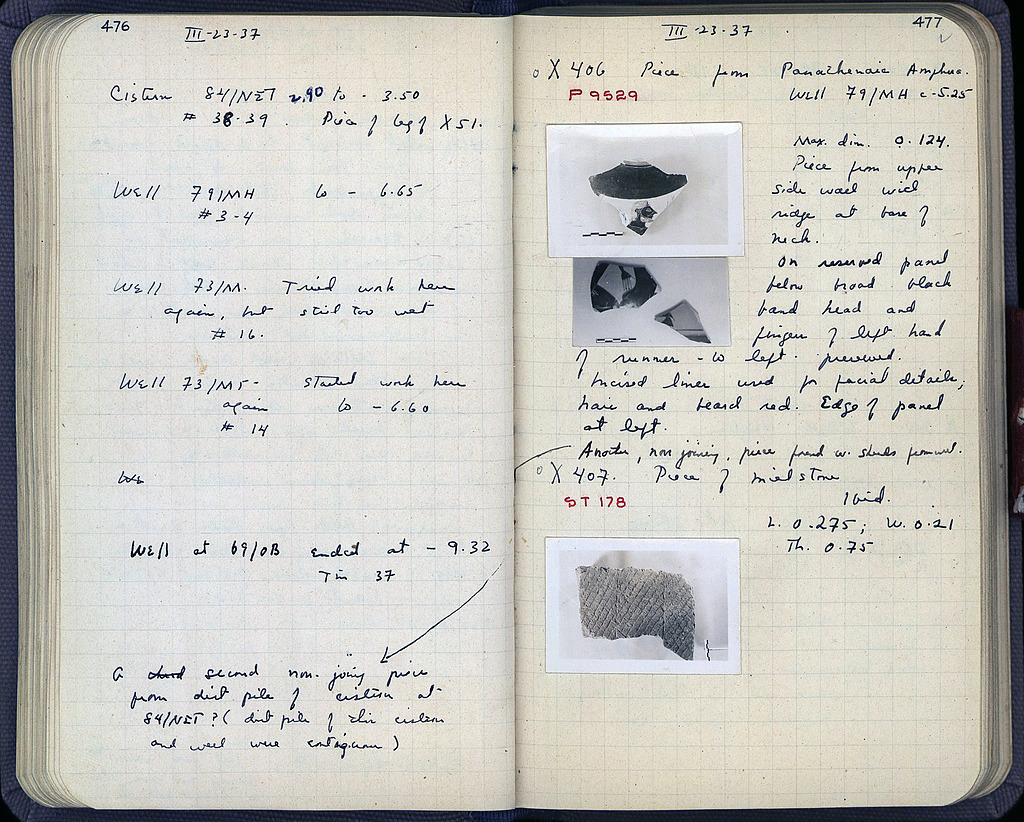 476
III-23-37
Cistern 84/NET 2.90 to - 3.50
# 38-39. Piece of leg of X51.
Well 79/MH to - 6.65
#3-4
Well 73/M. Tried work here
again, but still too wet
# 16.
Well 73/M5- Started work here
again to - 6.60
# 14
We
Well at 69/OB ended at - 9.32
Tin 37
A third second non-joining piece
from dirt pile of cistern at
84/NET? (dirt pile of this cistern
and well were contiguous)
477
III-23-37
X 406 Piece from Panathenaic Amphora.
P 9529 Well 79/MH c-5.25
Max. dim. 0.124.
Piece from upper
side wall with
ridge at base of
neck.
On reserved panel
below broad black
band head and
fingers of left hand
of runner - to left. preserved.
Incised lines used for facial details,
hair and beard red. Edge of panel
at left.
Another, non joining, piece found w. sherds from well.
X 407. Piece of millstone
ST 178 Ibid.
L. 0.275; W. 0.21
Th. 0.75